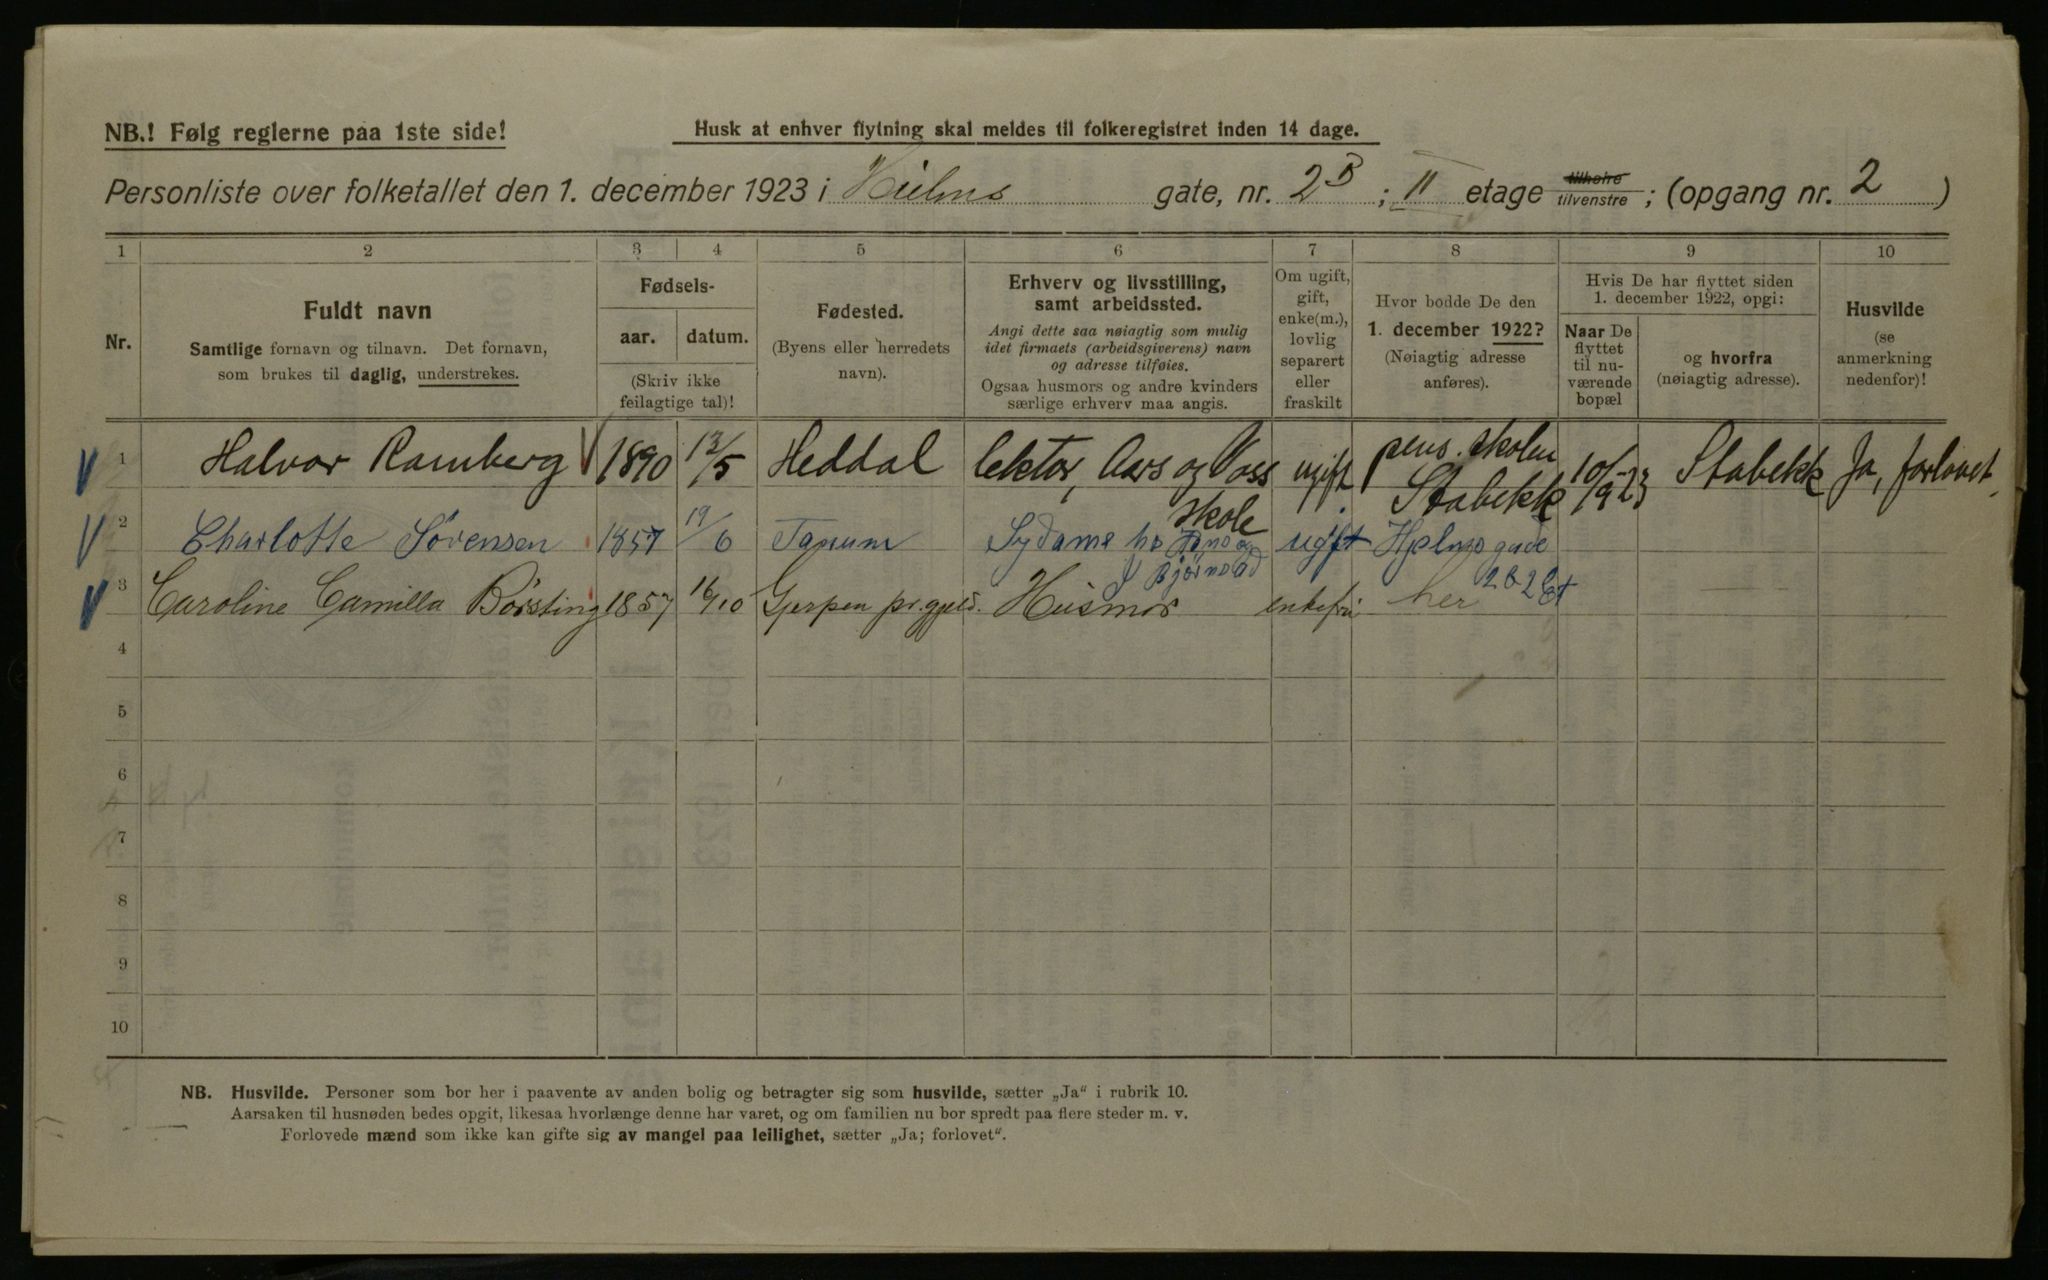 NB.! Følg reglerne paa 1ste side!
Husk at enhver flytning skal meldes til folkeregistret inden 14 dage.
Personliste over folketallet den 1. december 1923 i Hielms gate, nr. 2B ; II etage tilhøire tilvenstre ; (opgang nr. 2 )
1 2 3 4 5 6 7 8 9 10
Nr.
Fuldt navn
Samtlige fornavn og tilnavn. Det fornavn,
som brukes til daglig, understrekes.
Fødsels-
aar. datum.
(Skriv ikke
feilagtige tal)!
Fødested.
(Byens eller herredets
navn).
Erhverv og livsstilling,
samt arbeidssted.
Angi dette saa nøiagtig som mulig
idet firmaets (arbeidsgiverens) navn
og adresse tilføies.
Ogsaa husmors og andre kvinders
særlige erhverv maa angis.
Om ugift,
gift,
enke(m.),
lovlig
separert
eller
fraskilt
Hvor bodde De den
1. december 1922?
(Nøiagtig adresse
anføres).
Hvis De har flyttet siden
1. december 1922, opgi:
Naar De
flyttet
til nu-
værende
bopæl
og hvorfra
(nøiagtig adresse).
Husvilde
(se
anmerkning
nedenfor)!
1 Halvor Ramberg 1890 12/5 Heddal lektor, Aars og Voss skole ugift. pens. skolen Stabekk 10/9-23 Stabekk Ja, forlovet.
2 Charlotte Sørensen 1857 19/6 Tanum Sydame ugift Hjelms gade 2 b 2 Et
3 Caroline Camilla Børsting 1857 16/10 Gjerpen pr.gjeld. Husmor enkefru her
4
5
6
7
8
9
10
NB. Husvilde. Personer som bor her i paavente av anden bolig og betragter sig som husvilde, sætter „Ja“ i rubrik 10.
Aarsaken til husnøden bedes opgit, likesaa hvorlænge denne har varet, og om familien nu bor spredt paa flere steder m. v.
Forlovede mænd som ikke kan gifte sig av mangel paa leilighet, sætter „Ja; forlovet“.